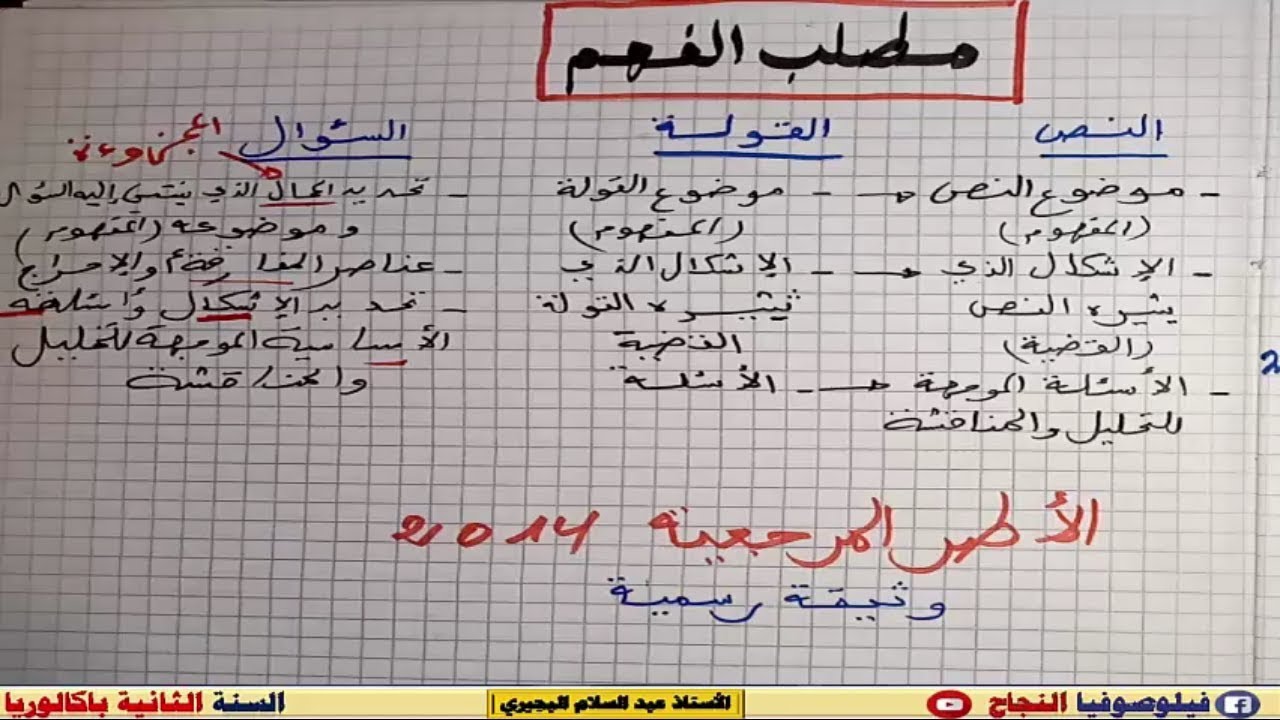 مطلب الفهم
النص
- موضوع النص
(المفهوم)
- الإشكال الذي
يثيره النص
(القضية)
- الأسئلة الموجهة
للتحليل والمناقشة
القولة
- موضوع القولة
(المفهوم)
- الإشكال الذي
تثيره القولة
القضية
- الأسئلة
السؤال
المجزوءة
- تحديد المجال الذي ينتمي إليه السؤال
وموضوعه (المفهوم)
- عناصر المفارقة والإحراج
- تحديد الإشكال وأسئلته
الأساسية الموجهة للتحليل
والمناقشة
2
الأطر المرجعية 2014
وثيقة رسمية
فيلوصوفيا النجاح
الأستاذ عبد السلام اليجيري
السنة الثانية باكالوريا